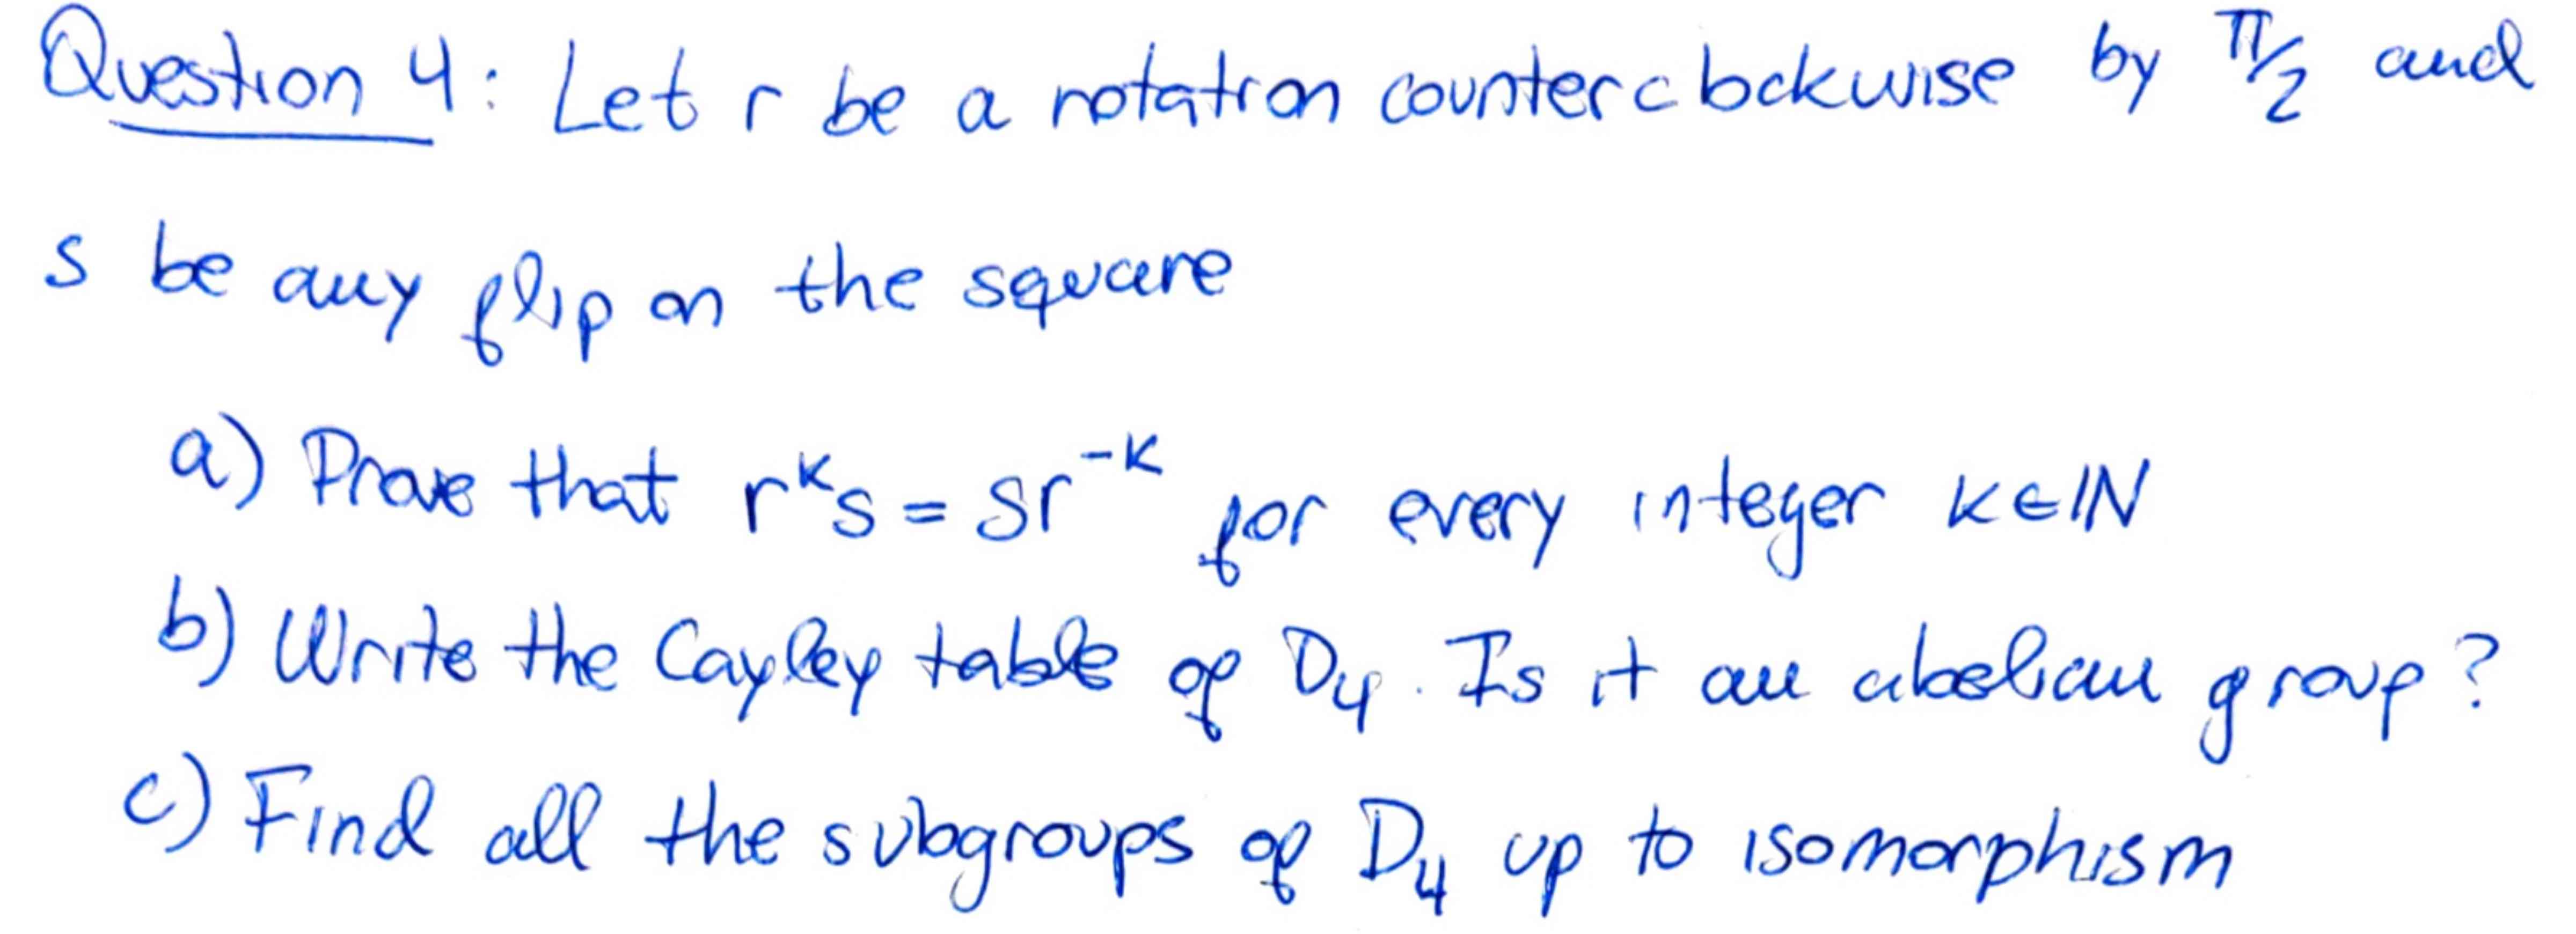 Question 4: Let r be a rotation counterclockwise by π/2 and
s be any flip on the square
a) Prove that r^k s = sr^-k for every integer k∈ℕ
b) Write the Cayley table of D₄. Is it an abelian group?
c) Find all the subgroups of D₄ up to isomorphism